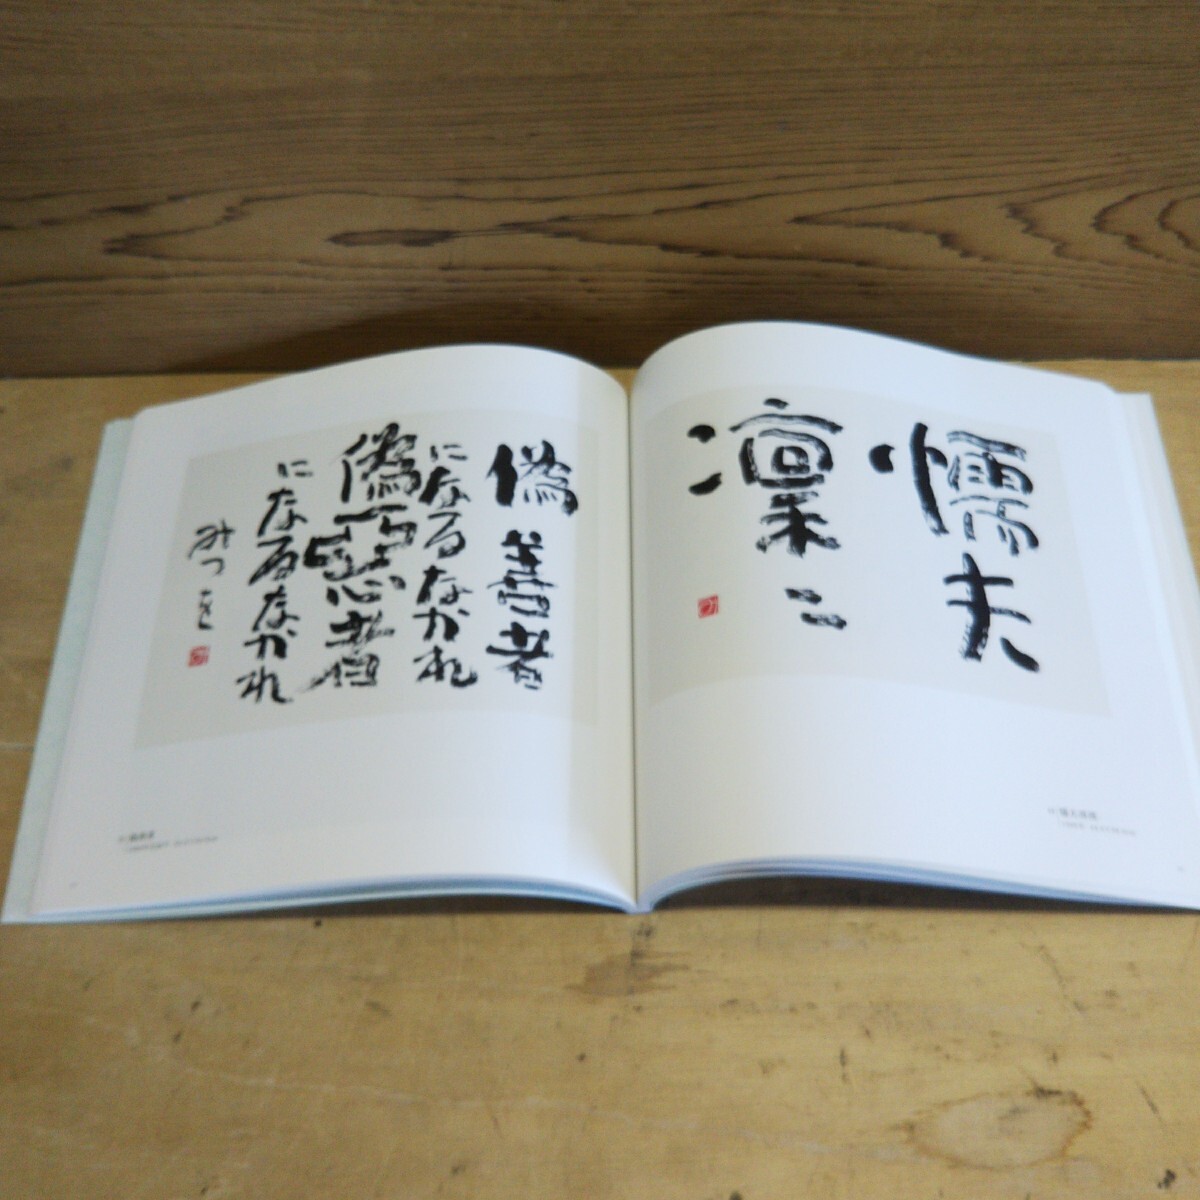 懦夫
凛〻
偽善者
になるなかれ
偽悪者
になるなかれ
みつを